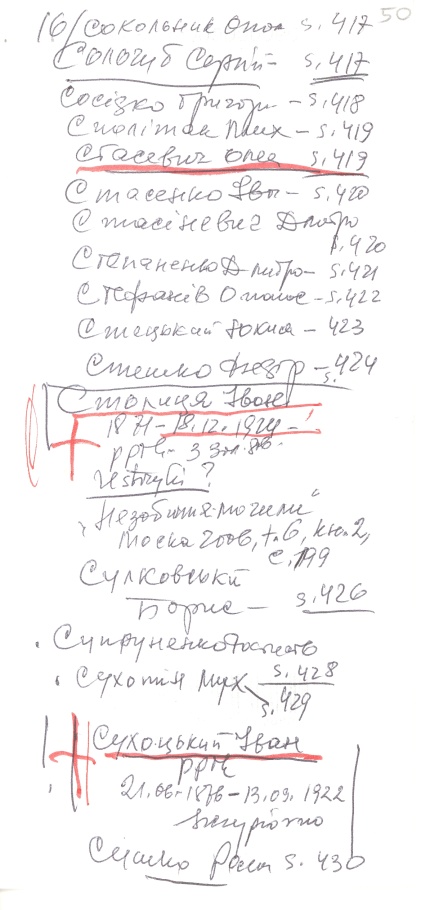 16/ Сокольник Опол s. 417 50
Сологуб Сергій - s. 417
Сосізко Григорі - s. 418
Сполітак Мих - s. 419
Стасевич Олек s. 419
Стасенко Іван - s. 420
Стасіневич Дмитро
s. 420
Степаненко Дмитро - s. 421
Стефанів О - s. 422
Стецький - 423
Стешко Федір - s. 424
Столиця Іван
1871 - 18.12. 1924 - !
ррłk -
Ustrzyki ?
"Незабытые могилы"
Москва 2006, t. 6, кн. 2,
с. 199
Сулковський
Борис - s. 426
. Супруненко
. Сухотін Мих s. 428
s. 429
Сухоцький Іван
ppłk
21.06.1876 - 13.09. 1922
Сушко Роман s. 430